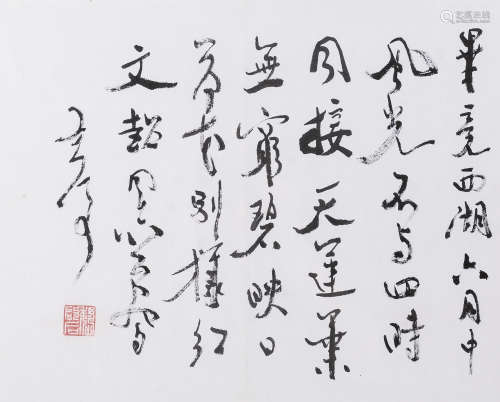 畢竟西湖六月中
風光不与四時
同接天蓮葉
無窮碧映日
荷花別樣紅
文超同心